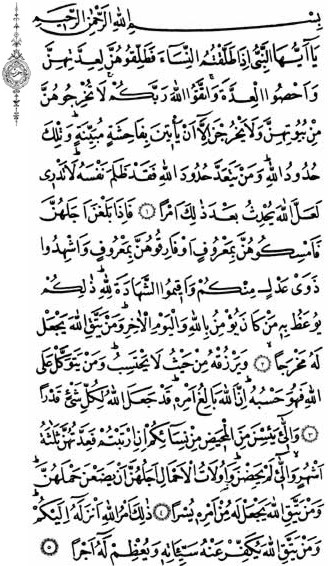 بِسْمِ اللهِ الرَّحْمٰنِ الرَّحِيمِ
يَا اَيُّهَا النَّبِيُّ اِذَا طَلَّقْتُمُ النِّسَاءَ فَطَلِّقُوهُنَّ لِعِدَّتِهِنَّ
وَاَحْصُوا الْعِدَّةَ وَاتَّقُوا اللهَ رَبَّكُمْ لَا تُخْرِجُوهُنَّ
مِنْ بُيُوتِهِنَّ وَلَا يَخْرُجْنَ اِلَّا اَنْ يَاْتِينَ بِفَاحِشَةٍ مُبَيِّنَةٍ وَتِلْكَ
حُدُودُ اللهِ وَمَنْ يَتَعَدَّ حُدُودَ اللهِ فَقَدْ ظَلَمَ نَفْسَهُ لَا تَدْرِى
لَعَلَّ اللهَ يُحْدِثُ بَعْدَ ذٰلِكَ اَمْرًا ﴿١﴾ فَاِذَا بَلَغْنَ اَجَلَهُنَّ
فَاَمْسِكُوهُنَّ بِمَعْرُوفٍ اَوْ فَارِقُوهُنَّ بِمَعْرُوفٍ وَاَشْهِدُوا
ذَوَىْ عَدْلٍ مِنْكُمْ وَاَقِيمُوا الشَّهَادَةَ لِلّٰهِ ذٰلِكُمْ
يُوعَظُ بِهِ مَنْ كَانَ يُؤْمِنُ بِاللهِ وَالْيَوْمِ الْاٰخِرِ وَمَنْ يَتَّقِ اللهَ يَجْعَلْ
لَهُ مَخْرَجًا ﴿٢﴾ وَيَرْزُقْهُ مِنْ حَيْثُ لَا يَحْتَسِبُ وَمَنْ يَتَوَكَّلْ عَلَى
اللهِ فَهُوَ حَسْبُهُ اِنَّ اللهَ بَالِغُ اَمْرِهِ قَدْ جَعَلَ اللهُ لِكُلِّ شَيْءٍ قَدْرًا
﴿٣﴾ وَالّٰـِٔى يَئِسْنَ مِنَ الْمَحِيضِ مِنْ نِسَائِكُمْ اِنِ ارْتَبْتُمْ فَعِدَّتُهُنَّ ثَلٰثَةُ
اَشْهُرٍ وَالّٰـِٔى لَمْ يَحِضْنَ وَاُولَاتُ الْاَحْمَالِ اَجَلُهُنَّ اَنْ يَضَعْنَ حَمْلَهُنَّ
وَمَنْ يَتَّقِ اللهَ يَجْعَلْ لَهُ مِنْ اَمْرِهِ يُسْرًا ﴿٤﴾ ذٰلِكَ اَمْرُ اللهِ اَنْزَلَهُ اِلَيْكُمْ
وَمَنْ يَتَّقِ اللهَ يُكَفِّرْ عَنْهُ سَيِّـَٔاتِهِ وَيُعْظِمْ لَهُ اَجْرًا ﴿٥﴾